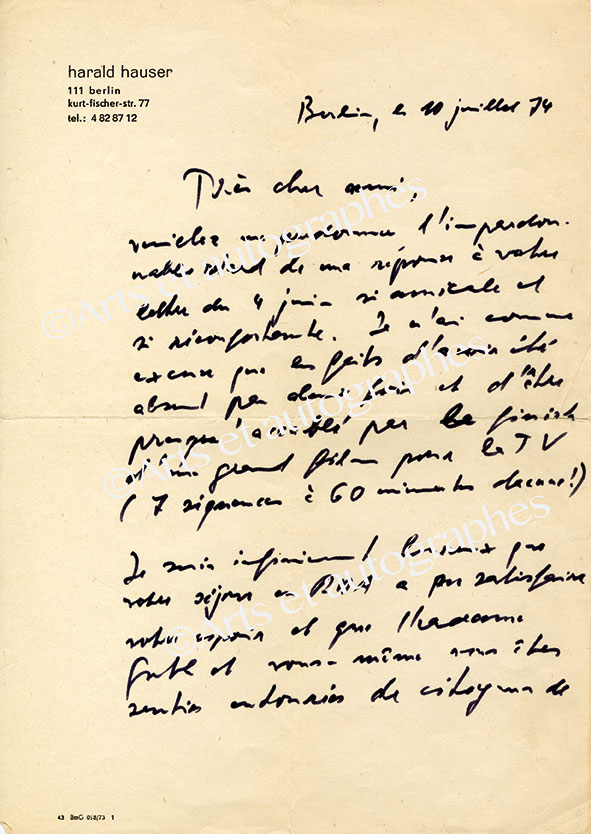 harald hauser
111 berlin
kurt-fischer-str. 77
tel.: 4 82 87 12
Berlin, le 10 juillet 74
Très cher ami,
veuillez me pardonner l'impardon-
nable retard de ma réponse à votre
lettre du 4 juin si amicale et
si réconfortante. Je n'ai comme
excuse que les faits d'avoir été
absent pendant mai et d'être
presqu'accablé par le finish
d'un grand film pour la TV
(7 séquences à 60 minutes chacune!)
Je suis infiniment heureux que
votre séjour en RDA a pu satisfaire
votre espoir et que Madame
et vous-même vous êtes
sentis entourés de citoyens de
©Arts et autographes
©Arts et autographes
©Arts et autographes
43 BmG 058/73 1